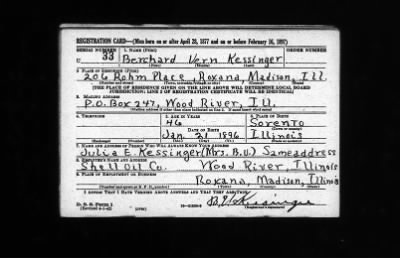 REGISTRATION CARD—(Men born on or after April 28, 1877 and on or before February 16, 1897)
SERIAL NUMBER 1. NAME (Print) ORDER NUMBER
U 33 Berchard Vern Kessinger
2. PLACE OF RESIDENCE (Print)
206 Rohm Place, Roxana, Madison, Ill.
[THE PLACE OF RESIDENCE GIVEN ON THE LINE ABOVE WILL DETERMINE LOCAL BOARD
JURISDICTION; LINE 2 OF REGISTRATION CERTIFICATE WILL BE IDENTICAL]
3. MAILING ADDRESS
P.O. Box 247, Wood River, Ill.
4. TELEPHONE 5. AGE IN YEARS 6. PLACE OF BIRTH
46 Sorento
DATE OF BIRTH
Jan. 21 1896 Illinois
7. NAME AND ADDRESS OF PERSON WHO WILL ALWAYS KNOW YOUR ADDRESS
Julia E. Kessinger (Mrs. B.V.) Same address
8. EMPLOYER'S NAME AND ADDRESS
Shell Oil Co. Wood River, Illinois
9. PLACE OF EMPLOYMENT OR BUSINESS
Roxana, Madison, Illinois
I AFFIRM THAT I HAVE VERIFIED ABOVE ANSWERS AND THAT THEY ARE TRUE.
D. S. S. Form 1
B.V. Kessinger